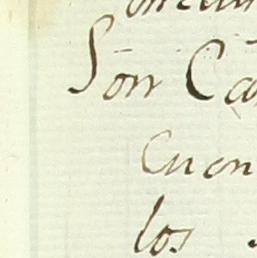 Son Ca
Cuen
los